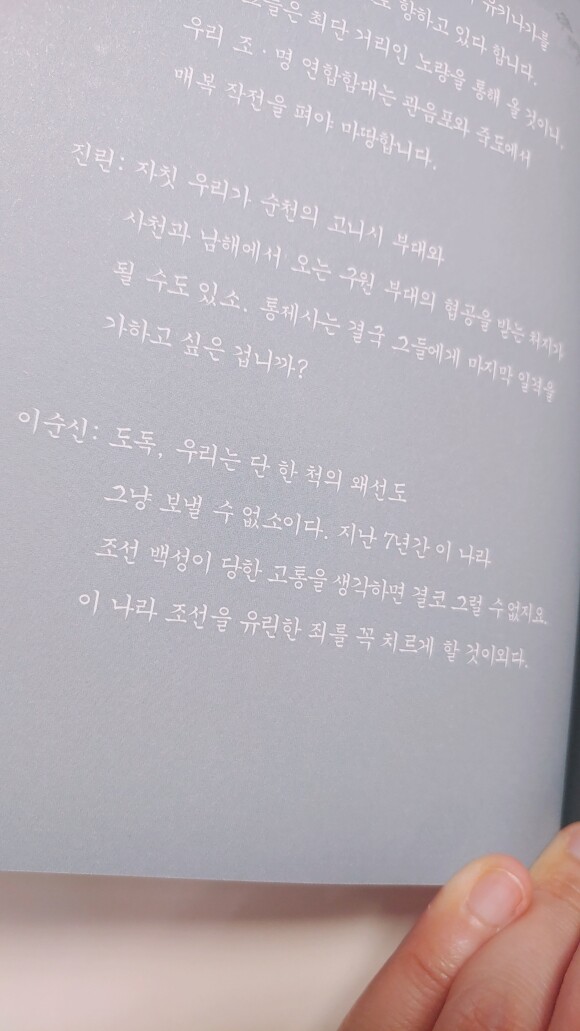 유키나가를
향하고 있다 합니다.
최단 거리인 노량을 통해 올 것이니,
우리 조·명 연합함대는 관음포와 죽도에서
매복 작전을 펴야 마땅합니다.
진린: 자칫 우리가 순천의 고니시 부대와
사천과 남해에서 오는 구원 부대의 협공을 받는 처지가
될 수도 있소. 통제사는 결국 그들에게 마지막 일격을
가하고 싶은 겁니까?
이순신: 도독, 우리는 단 한 척의 왜선도
그냥 보낼 수 없소이다. 지난 7년간 이 나라
조선 백성이 당한 고통을 생각하면 결코 그럴 수 없지요.
이 나라 조선을 유린한 죄를 꼭 치르게 할 것이외다.